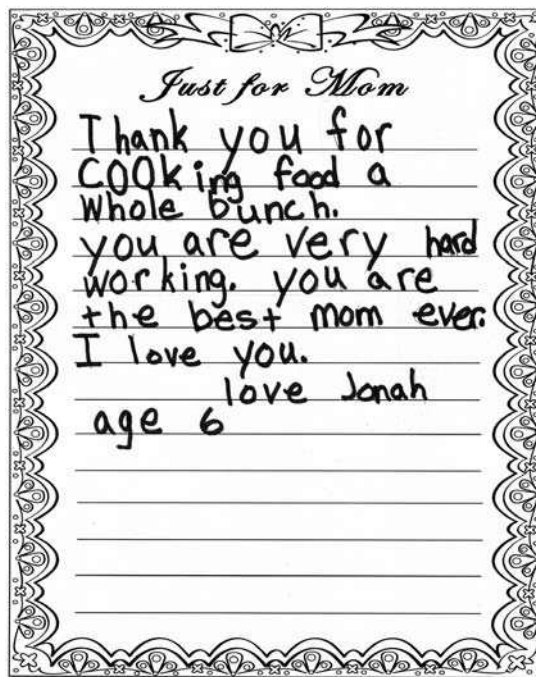 Just for Mom
Thank you for
COOking food a
whole bunch.
you are very hard
working. you are
the best mom ever.
I love you.
love Jonah
age 6